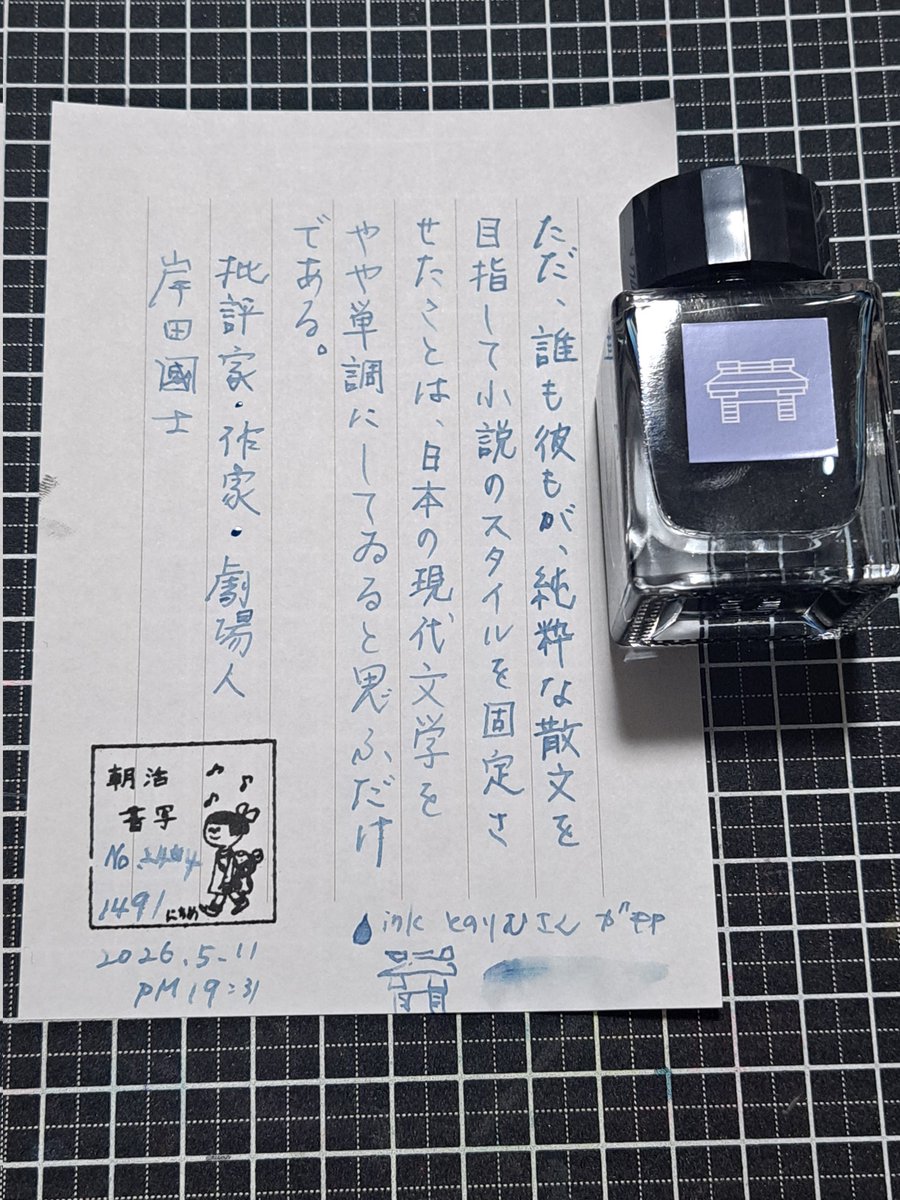 ただ、誰も彼もが、純粋な散文を
目指して小説のスタイルを固定さ
せたことは、日本の現代文学を
やや単調にしてゐると思ふだけ
である。
批評家・作家・劇場人
岸田國士
朝活
書写
No
1491
にちめ
2026.5.11
PM 19:31
ink とのりむさん ガモヤ